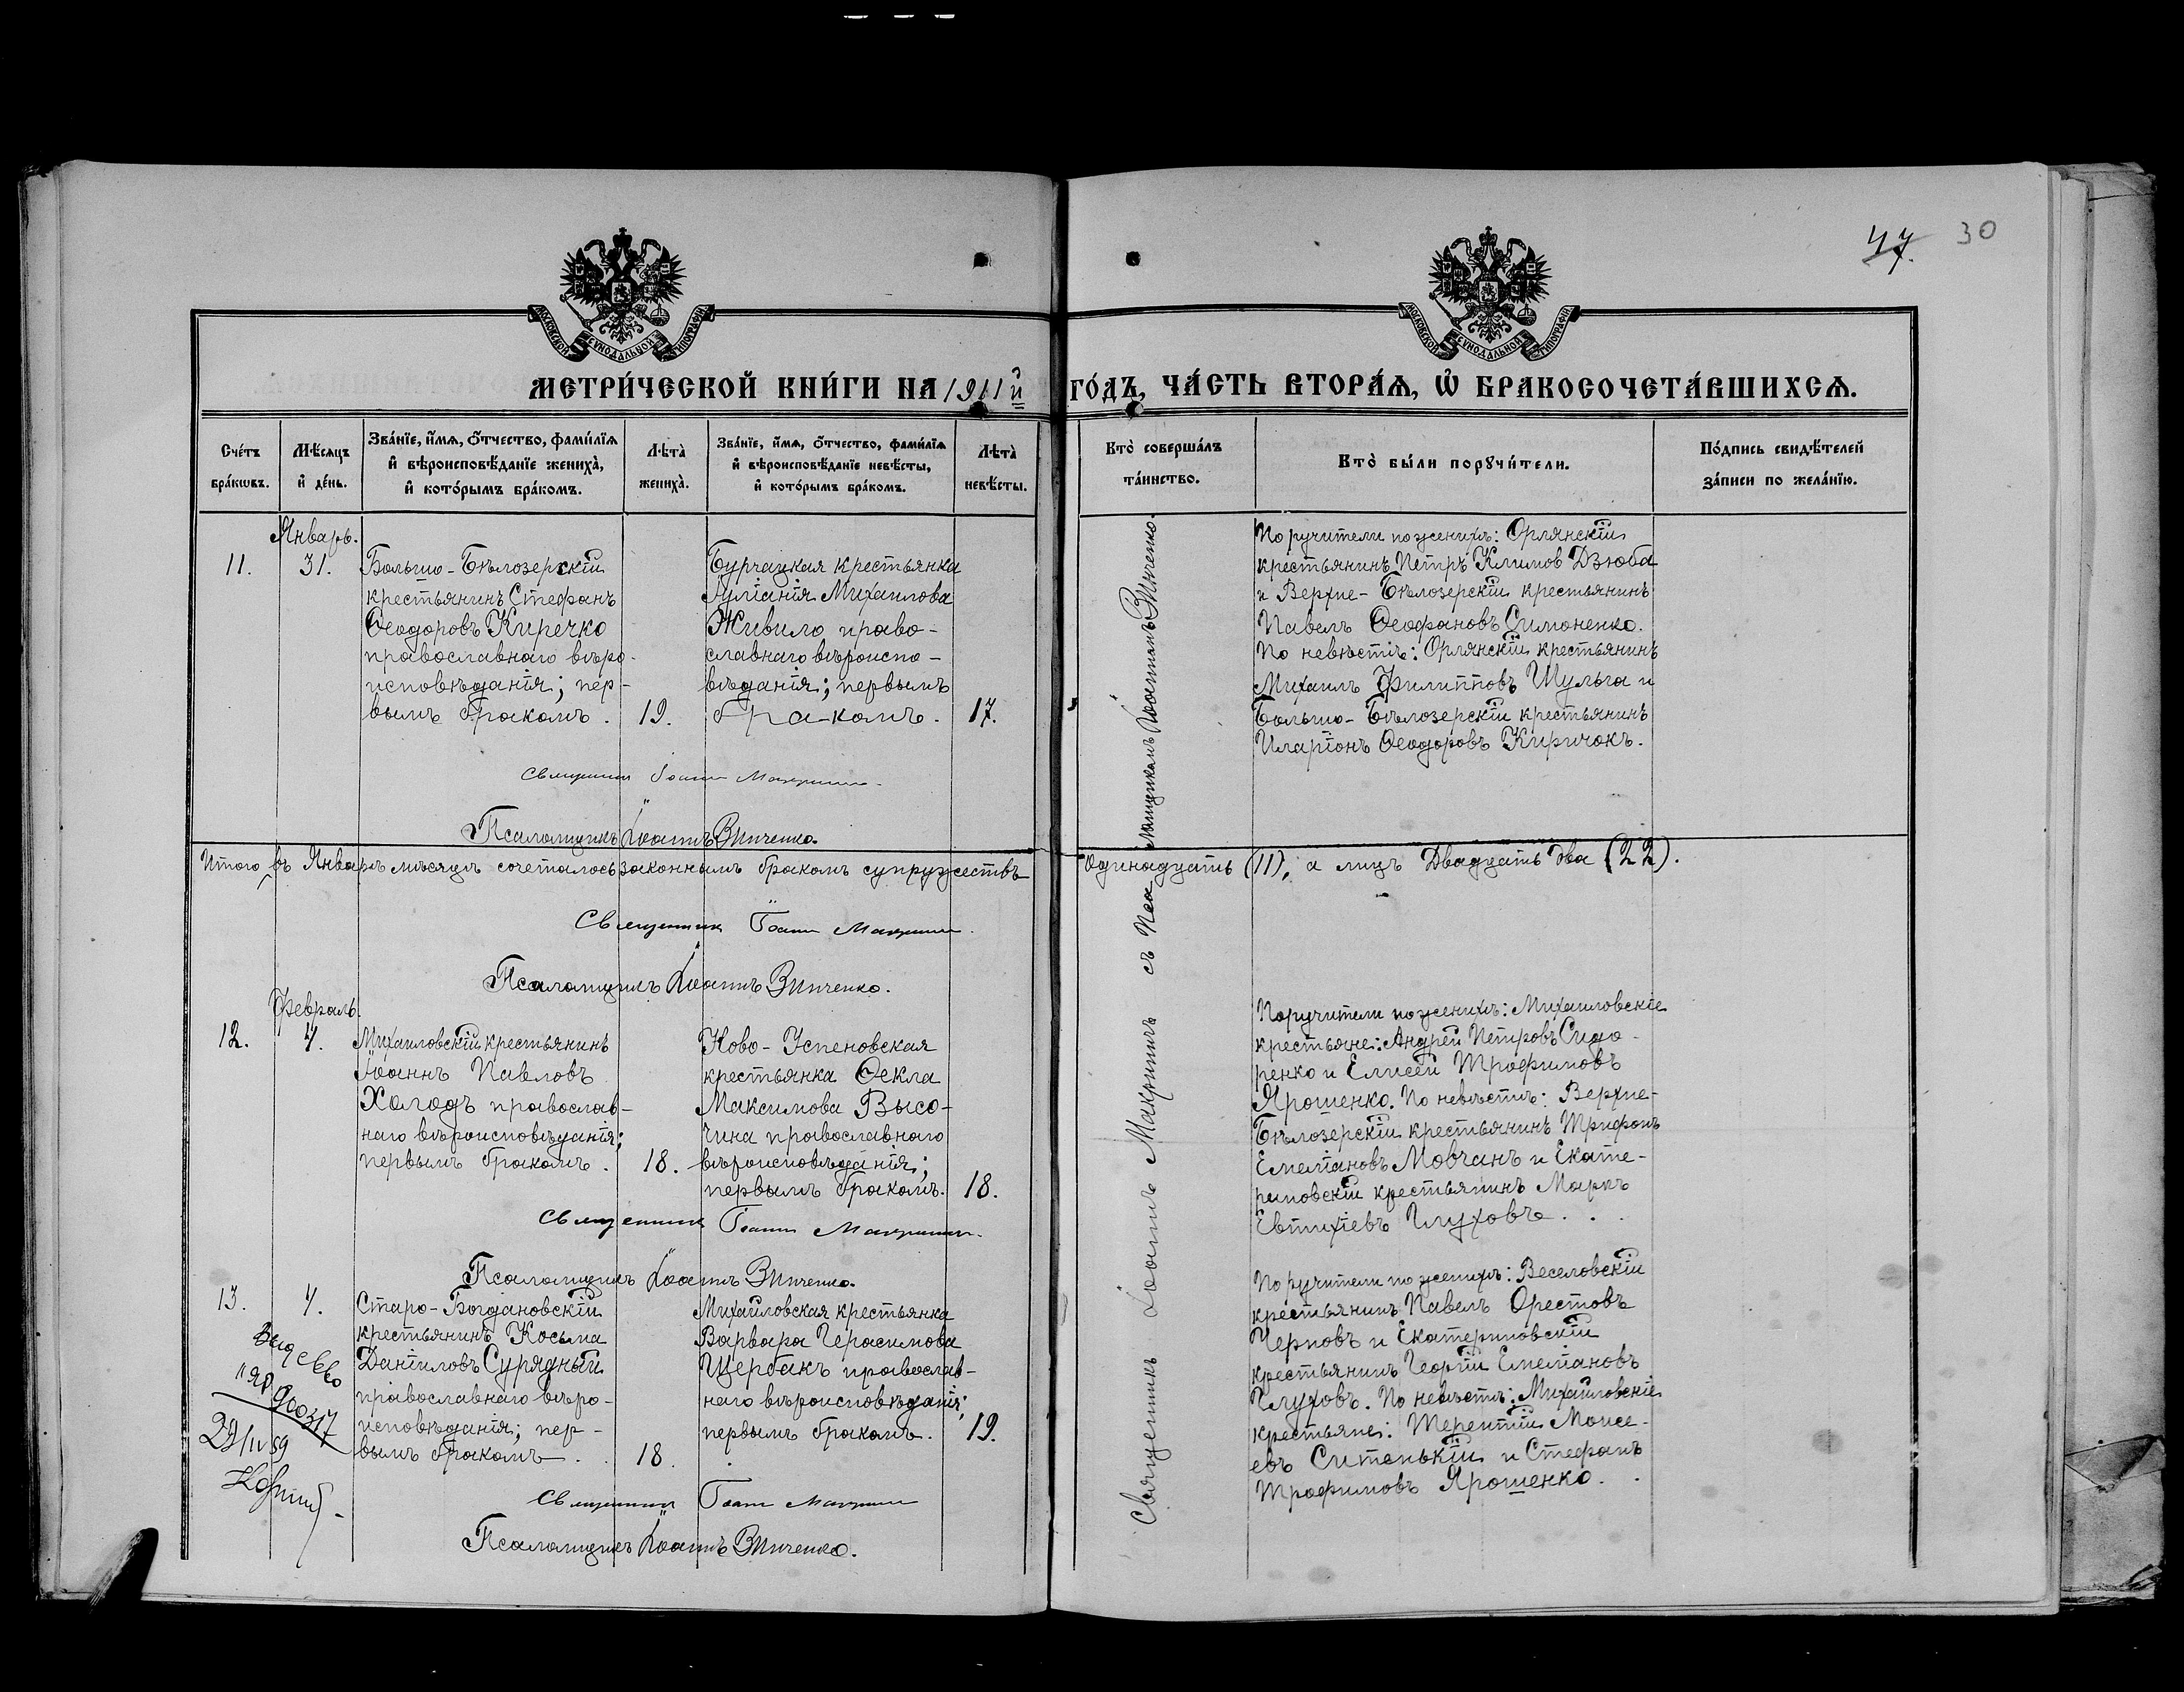 47. 30
МОСКОВСКОЙ СѴНОДАЛЬНОЙ ТИПОГРАФІИ
МОСКОВСКОЙ СѴНОДАЛЬНОЙ ТИПОГРАФІИ
МЕТРИ́ЧЕСКОЙ КНИ́ГИ НА 1911 й ГО́ДЪ, ЧА́СТЬ ВТОРА́Я, Ѡ҆ БРАКОСОЧЕТА́ВШИХСЯ.
Сче́тъ бра́кѡвъ.
Мѣ́сяцъ и҆ де́нь.
Зва́нїе, и҆́мя, ѻ҆́тчество, фами́лїя и҆ вѣроисповѣ́данїе жениха̀, и҆ кото́рымъ бра́комъ.
Лѣ́та̀ жениха̀.
Зва́нїе, и҆́мя, ѻ҆́тчество, фами́лїя и҆ вѣроисповѣ́данїе невѣ́сты, и҆ кото́рымъ бра́комъ.
Лѣ́та̀ невѣ́сты.
Кто̀ соверша́лъ та́инство.
Кто̀ бы́ли порꙋчи́тели.
По́дпись свидѣ́телей за́писи по жела́нїю.
Январь.
11. 31.
Больше-Бѣлозерскій
крестьянинъ Стефанъ
Ѳеодоровъ Киречко
православнаго вѣро-
исповѣданія; пер-
вымъ бракомъ. 19.
Бурчацкая крестьянка
Іуліанія Михаилова
Живило право-
славнаго вѣроиспо-
вѣданія; первымъ
бра-комъ. 17.
Поручители по женихѣ: Орлянскій
крестьянинъ Петръ Климов Дзюба
и Верхне-Бѣлозерскій крестьянинъ
Павелъ Ѳеофановъ Симоненко.
По невѣстѣ: Орлянскій крестьянинъ
Михаилъ Филипповъ Шульга и
Больше-Бѣлозерскій крестьянинъ
Иларіонъ Ѳеодоровъ Киричокъ.
Священникъ Іоаннъ Макухинъ
Псаломщикъ Іоаннъ Зинченко.
Итого въ Январѣ мѣсяцѣ сочеталось законнымъ бракомъ супружествъ Одинадцать (11), а лицъ Двадцать два (22).
Священникъ Іоаннъ
Псаломщикъ Іоаннъ Зинченко.
Февраль.
12. 4.
Михаиловскій крестьянинъ
Іоаннъ Павловъ
Холодъ православ-
наго вѣроисповѣданія;
первымъ бракомъ. 18.
Ново-Успеновская
крестьянка Ѳекла
Максимова Высо-
чина православнаго
вѣроисповѣданія;
первымъ бракомъ. 18.
Поручители по женихѣ: Михаиловскіе
крестьяне: Андрей Петровъ Сидо-
ренко и Елисей Трофимовъ
Ярошенко. По невѣстѣ: Верхне-
Бѣлозерскій крестьянинъ Трифонъ
Емеліановъ Мовчанъ и Екате-
риновскій крестьянинъ Маркъ
Евтихіевъ Глуховъ.
Священникъ Іоаннъ
Псаломщикъ Іоаннъ Зинченко.
13. 4.
Старо-Богдановскій
крестьянинъ Косьма
Даніиловъ Сурядный
православнаго вѣро-
исповѣданія; пер-
вымъ бракомъ. 18.
Михайловская крестьянка
Варвара Герасимова
Щербакъ православ-
наго вѣроисповѣданія;
первымъ бракомъ. 19.
Поручители по женихѣ: Веселовскій
крестьянинъ Павелъ Орестовъ
Черновъ и Екатериновскій
крестьянинъ Георгій Емеліановъ
Глуховъ. По невѣстѣ: Михайловскіе
крестьяне: Терентій Моисе-
евъ Ситенькій и Стефанъ
Трофимовъ Ярошенко.
29/IV 59
Священникъ Іоаннъ
Псаломщикъ Іоаннъ Зинченко.
Священникъ Іоаннъ съ Псаломщикомъ Іоанномъ Зинченко.